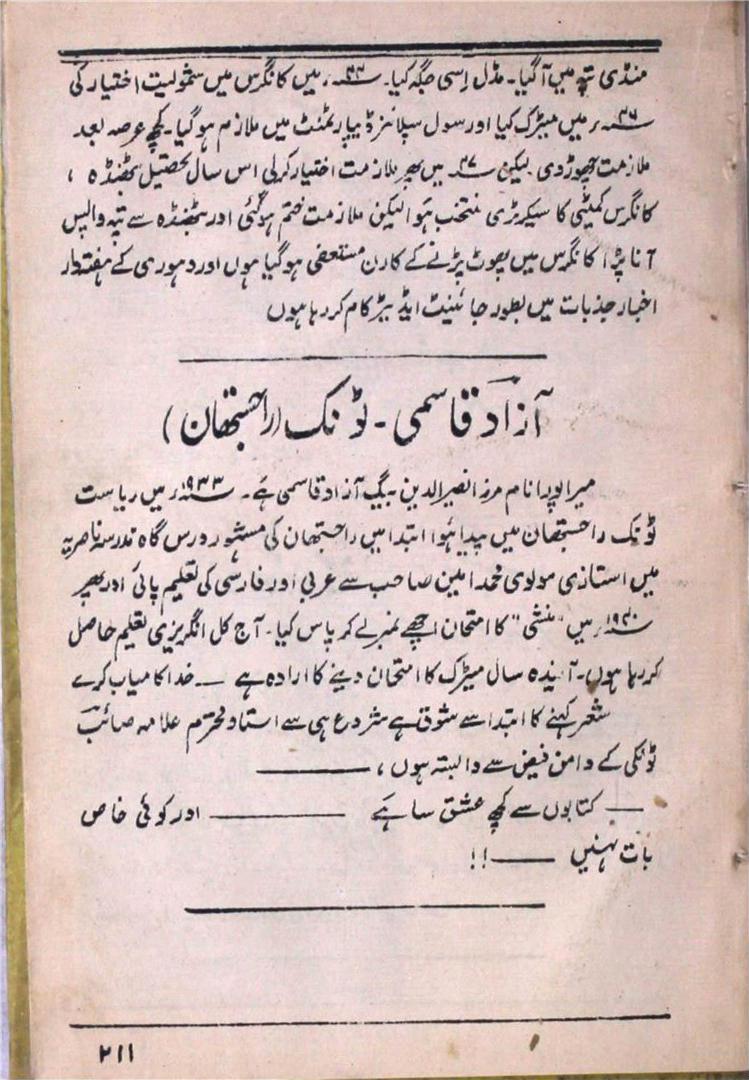 منڈی تپہ میں آگیا۔ مڈل اِسی جگہ کیا۔ ۴۴ء میں کانگرس میں شمولیت اختیار کی
۴۶ء میں میٹرک کیا اور سول سپلائیز ڈیپارٹمنٹ میں ملازم ہوگیا۔ کچھ عرصہ بعد
ملازمت چھوڑ دی لیکن ۴۷ء میں پھر ملازمت اختیار کرلی اس سال تحصیل بٹھنڈہ ،
کانگرس کمیٹی کا سیکرٹری منتخب ہوا لیکن ملازمت ختم ہوگئی اور بٹھنڈہ سے تپہ واپس
آنا پڑا کانگرس میں پھوٹ پڑنے کے کارن مستعفی ہوگیا ہوں اور دہوری کے ہفتہ وار
اخبار جذبات میں بطور جائینٹ ایڈیٹر کام کررہا ہوں
آزاد قاسمی - ٹونک (راجستھان)
میرا پورا نام مرزا نصیرالدین بیگ آزاد قاسمی ہے۔ ۱۹۳۳ء میں ریاست
ٹونک راجستھان میں پیدا ہوا ابتدا میں راجستھان کی مشہور درس گاہ مدرسہ ناصریہ
میں استاذی مولوی محمد امین صاحب سے عربی اور فارسی کی تعلیم پائی اور پھر
میں "منشی" کا امتحان اچھے نمبر لے کر پاس کیا۔ آج کل انگریزی تعلیم حاصل
کررہا ہوں۔ آئیندہ سال میٹرک کا امتحان دینے کا ارادہ ہے — خدا کامیاب کرے
شعر کہنے کا ابتدا سے شوق ہے شروع ہی سے استاد محترم علامہ صائب
ٹونکی کے دامن فیض سے وابستہ ہوں ، ——
— کتابوں سے کچھ عشق سا ہے —— اور کوئی خاص
بات نہیں —— !!
۲۱۱